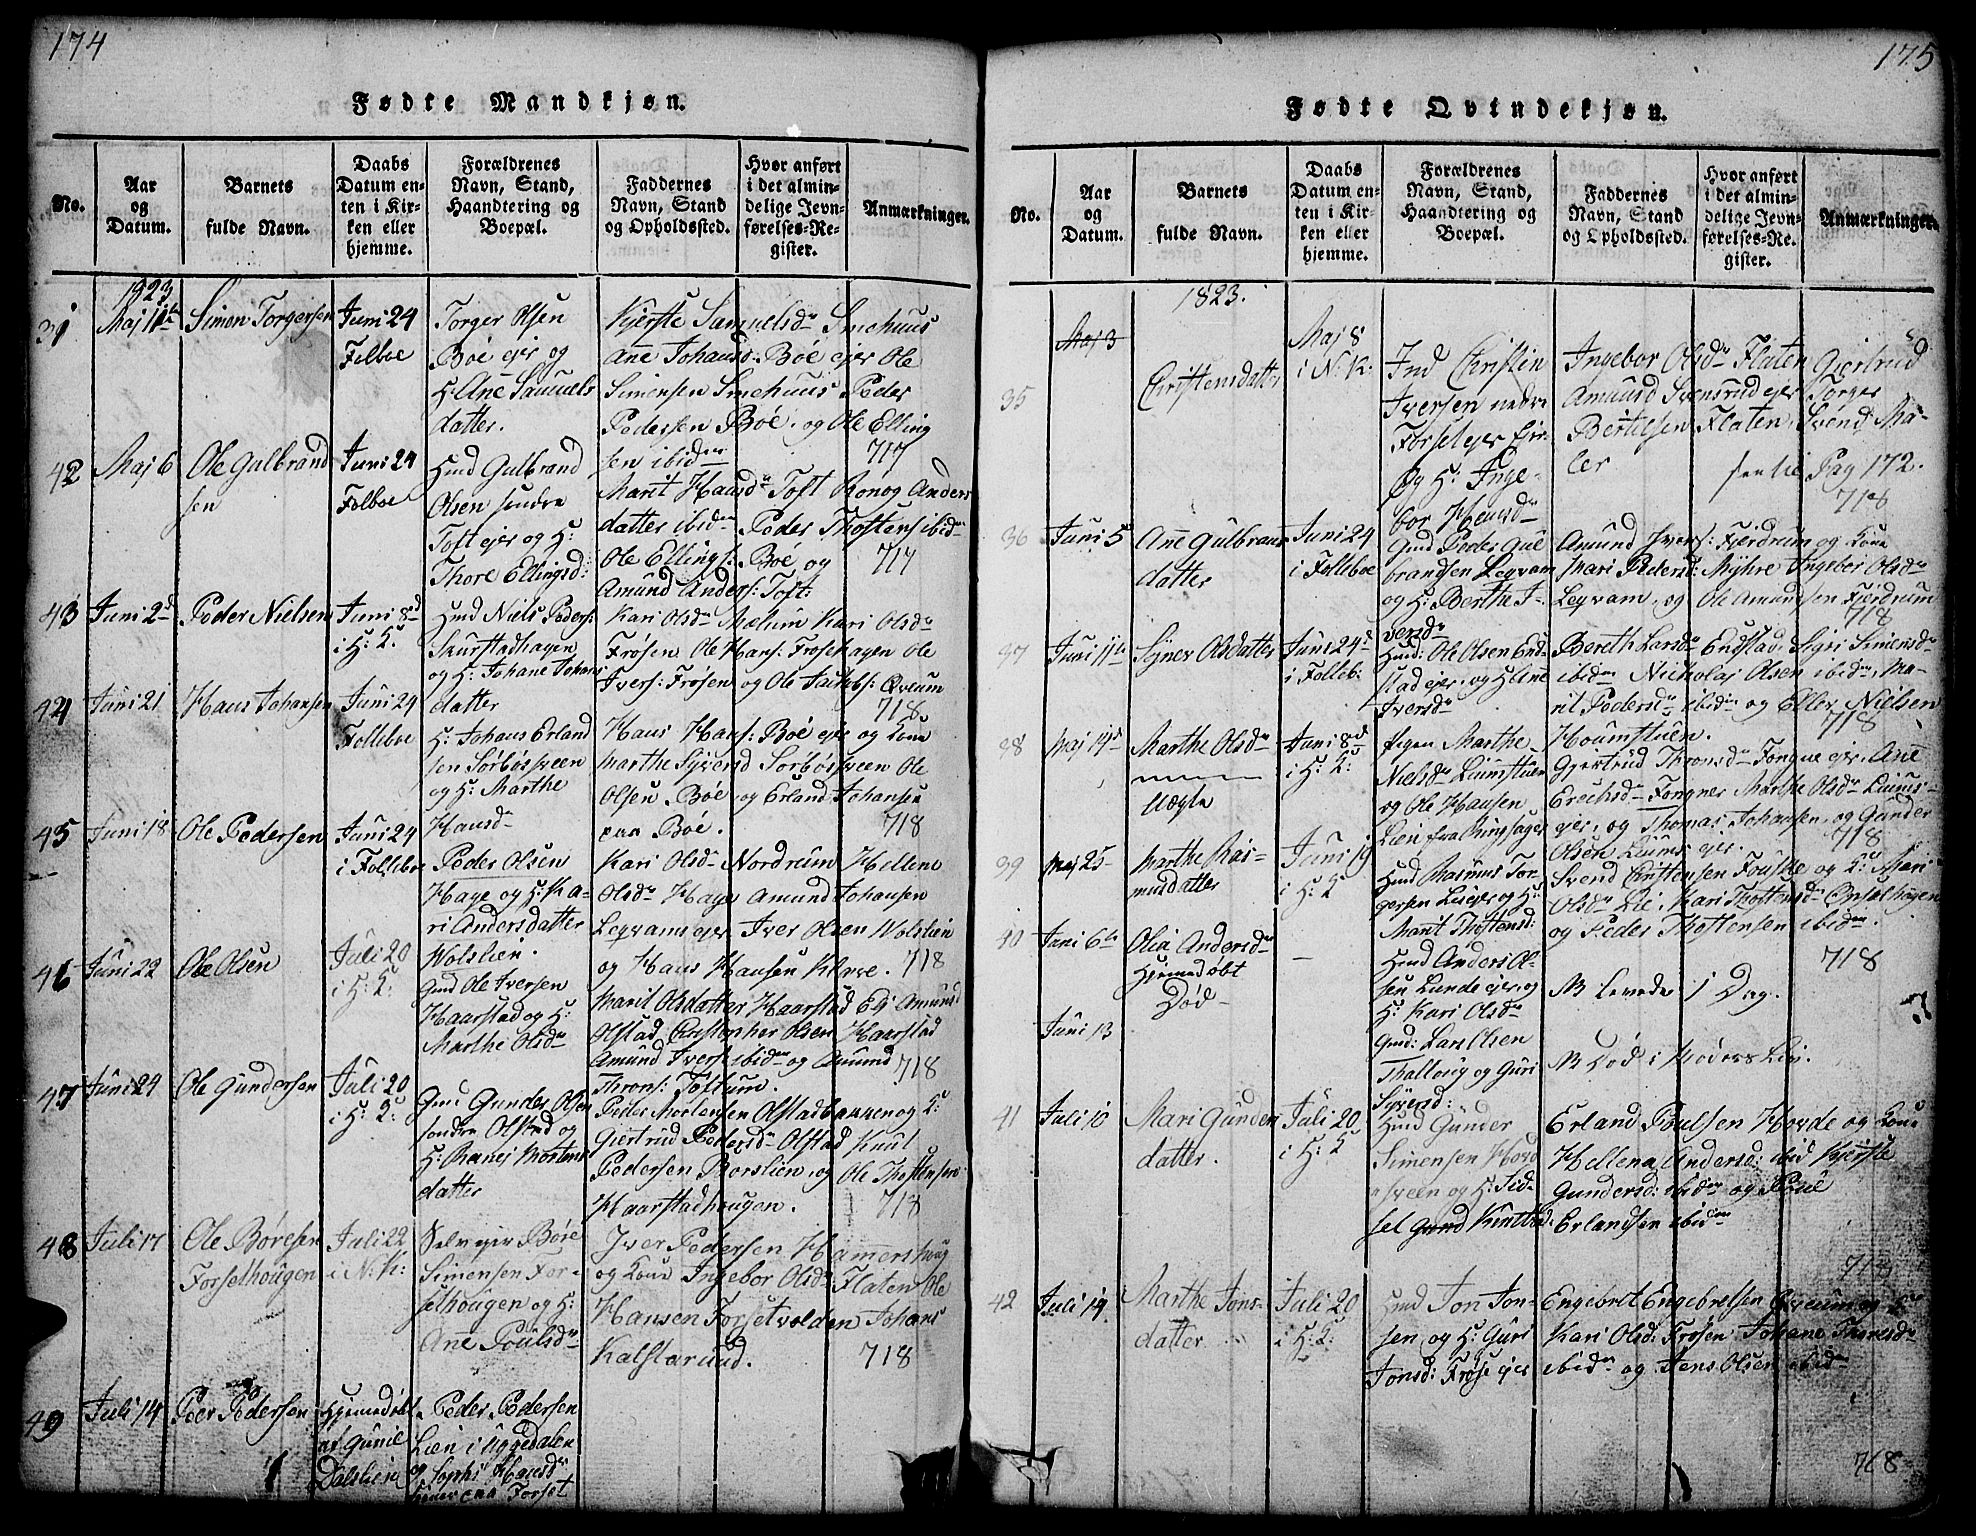 174
Fødte Mandkjøn.
No.
Aar
og
Datum.
Barnets
fulde Navn.
Daabs
Datum en-
ten i Kir-
ken eller
hjemme.
Forældrenes
Navn, Stand,
Haandtering og
Boepæl.
Faddernes
Navn, Stand
og Opholdssted.
Hvor anført
i det almin-
delige Jevn-
førelses-Re-
gister.
Anmærkninger.
1823
Maj 11te
Simon Torgersen
Juni 24
Folboe
Torger Olsen
Böe ejer og
H: Ane Samuels
datter.
Kjerste Samuelsdr Smehuus
Ane Johansd: Böe ejer Ole
Simensen Smehuus Peder
Pedersen Böe, og Ole Elling
sen ibidm
717
42
Maj 6
Ole Gulbrand
sen
Juni 24
Folboe
Hmd Gulbrand
Olsen søndre
Toft ejer og H:
Thore Ellingsd:
Marit Hansdr Toft Ronog Anders
datter ibidm Peder Thostens ibidm
Ole Ellings: Böe og
Amund Anders: Toft:
717
43
Juni 2d
Peder Nielsen
Juni 8d
i H: K:
Hmd Niels Peders:
Skurstadhagen
og H: Johane Johans
datter
Kari Olsdr Mælum Kari Olsdr
Frösen Ole Hans: Frösehagen Ole
Ivers: Frösen og Ole Jacobs: Överum
718
44
Juni 21
Hans Johansen
Juni 24
Folleboe
H: Johans Erland
sen Sörbösveen
og H: Marthe
Hansdr
Hans Hans: Böe ejer og Kone
Marthe Syversd Sörbösveen Ole
Olsen Böe og Erland Johansen
paa Böe.
718
45
Juni 18
Ole Pedersen
Juni 24
i Follebo
Peder Olsen
Hage og H: Ka-
ri Andersdatter
Wolslien.
Kari Olsdr Nordrum Hellene
Olsdr Hage Amund Johansen
Legvam ejer Iver Olsen Wolslien
og Hans Hansen Klove. 718
46
Juni 22
Ole Olsen
Juli 20
i H: K:
Gmd Ole Iversen
Haarstad og H:
Marthe Olsdr
Marit Olsdatter Haarstad Ej: Amund
Olstad Christopher Olsen Haarstad
Amund Ivers: ibidm og Amund
Throns: Toftum.
718
47
Juni 24
Ole Gundersen
Juli 20
i H: K:
Gmd Gunder Olsen
søndre Olstad og
H: Ranej Mortens
datter
Peder Mortensen Olstadbakken og K:
Giertrud Pedersdr Olstad Knut
Pedersen Borslien, og Ole Thostensen
Haarstadhougen.
718
48
Juli 17
Ole Böresen
Forsethougen
Juli 22
i N: K:
Selvejer Böre
Simensen For-
sethougen og H:
Ane Poulsdr
Iver Pedersen Hamershoug
og Kone Ingebor Olsdr Flaten Ole
Hansen Forsetvolden Johans
Kalstarud.
718
49
Juli 14
Peer Pedersen
Hjemmedöbt
af Gunil
Dalslien
Peder Pedersen
Lien i Uggedalen
og Sophi Hansdr
paa Forset
175
Fødte Qvindekjøn.
No.
Aar
og
Datum.
Barnets
fulde Navn.
Daabs
Datum en-
ten i Kir-
ken eller
hjemme.
Forældrenes
Navn, Stand,
Haandtering og
Boepæl.
Faddernes
Navn, Stand
og Opholdssted.
Hvor anført
i det almin-
delige Jevn-
førelses-Re-
gister.
Anmærkninger.
1823.
35
Maj 3
Christensdatter
Maj 8
i N: K:
Ind Christen
Iversen nedre
Forset ejer
Og H: Inge-
bor Hansdr
Ingebor Olsdr Flaten Giertrud
Amund Svensrud ejer Torger
Bertelsen Flaten, Svend Ma-
ler
see til Pag 172.
718
36
Juni 5
Ane Gulbrans
datter
Juni 24
i Folleboe
Gmd Peder Gul
brandsen Legvam
og H: Berthe I-
versdr
Amund Ivers: Fjerdrum og Kone
Mari Pedersd: Myhre Ingebor Olsdr
Legvam, og Ole Amundsen Fjerdrum
718
37
Juni 11te
Synev Olsdatter
Juni 24de
i Folleb:
Hmd: Ole Olsen End-
stad ejer, og H: Ane
Iversdr
Bereth Larsdr Endstad, Sigri Simensdr
ibidm Nicholaj Olsen ibidm, Ma-
rit Pedersdr ibidm og Eller Nielsen
Houmstuen.
718
38
Maj 19d
Marthe Olsdr
Uægte
Juni 8d
i H: K:
Pigen Marthe
Nielsdr Liumstuen
og Ole Hansen
Lien fra Ringsager
Gjertrud Thronsdr Fongne ejer, Ane
Erichsdr Fongner Marthe Olsdr Liums-
ejer, og Thomas Johansen, og Gunder
Olsen Liums ejer.
718
39
Maj 25
Marthe Ras-
musdatter
Juni 19
i H: K
Hmd Rasmus Tor-
gersen Lie ejer og H:
Marit Thostensd:
Svend Christensen Fouske og K: Mari
Olsdr Lie, Kari Thostensdr
og Peder Thostensen ibidm.
40
Juni 6te
Olia Andersdr
Hjemmedöbt
Död
—
Hmd Anders Ol-
sen Lunde ejer, og
H: Kari Olsdr
NB levede 1 Dag.
718
Juni 13
Gmd: Lars Olsen
Thalloug og Guri
Syversd:
NB Död i Moders Liv.
41
Juli 10
Mari Gunder
datter.
Juli 20
i H: K
Hmd Gunder
Simensen Hov
sveen og H: Sid-
sel Gund Knutsd:
Erland Poulsen Hovde og Kone
Hellena Andersd: ibid Kjerste
Gundersd: ibidm og Poul
Erlandsen ibidm
718
42
Juli 19
Marthe Jons-
datter
Juli 20
i H: K:
Hmd Jon Jon-
sen og H: Guri
Jonsd: Fröse ejer
Engebret Engebretsen Överum og K:
Kari Olsd: Frösen Johane Thoresdr
ibidm og Jens Olsen ibidm
718